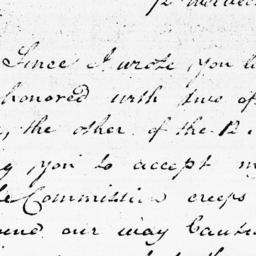 Since I wrote you
honored with two of
, the other of the 12
you to accept
Commission creeps
our way